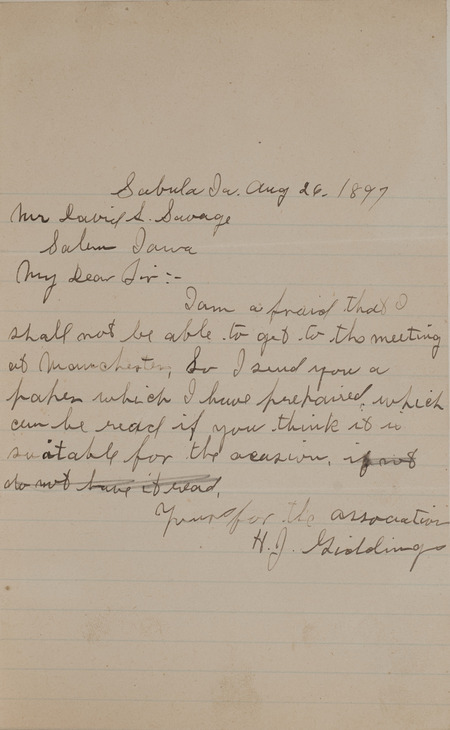 Sabula Ia. Aug 26. 1897
Mr David L. Savage
Salem Iowa
My Dear Sir:-
I am afraid that I
shall not be able to get to the meeting
at Manchester, So I send you a
paper which I have prepaired, which
can be read if you think it is
suitable for the acasion, if not
do not have it read,
Yours for the association
H. J. Giddings